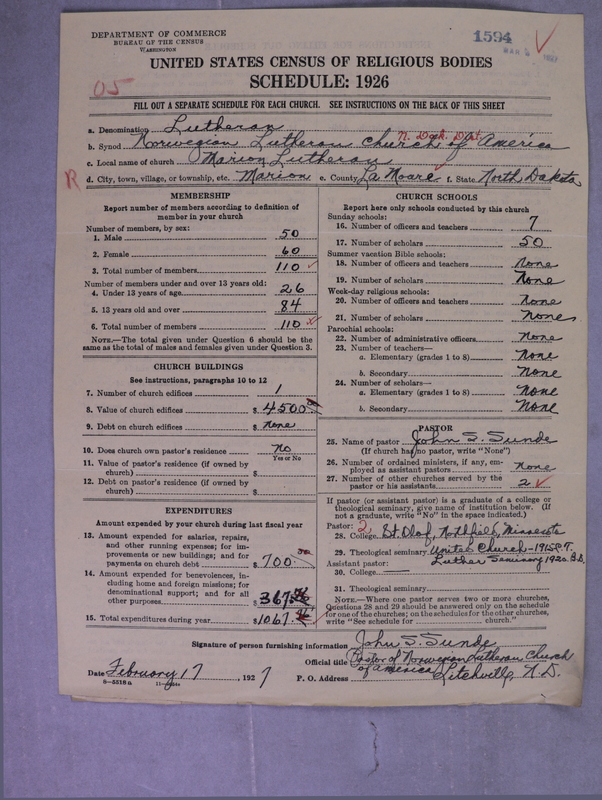 DEPARTMENT OF COMMERCE
BUREAU OF THE CENSUS
WASHINGTON
1594
UNITED STATES CENSUS OF RELIGIOUS BODIES
SCHEDULE: 1926
05
FILL OUT A SEPARATE SCHEDULE FOR EACH CHURCH. SEE INSTRUCTIONS ON THE BACK OF THIS SHEET
a. Denomination Lutheran
N. Dak. Dist.
b. Synod Norwegian Lutheran Church of America
c. Local name of church Marion Lutheran
R d. City, town, village, or township, etc. Marion e. County La Moure f. State North Dakota
MEMBERSHIP
Report number of members according to definition of
member in your church
Number of members, by sex:
1. Male 50
2. Female 60
3. Total number of members 110
Number of members under and over 13 years old:
4. Under 13 years of age 26
5. 13 years old and over 84
6. Total number of members 110
NOTE.—The total given under Question 6 should be
same as the total of males and females given under Question 3.
CHURCH BUILDINGS
See instructions, paragraphs 10 to 12
7. Number of church edifices 1
8. Value of church edifices $ 4500
9. Debt on church edifices $ None
10. Does church own pastor's residence? No
Yes or No
11. Value of pastor's residence (if owned by
church) $
12. Debt on pastor's residence (if owned by
church) $
EXPENDITURES
Amount expended by your church during last fiscal year
13. Amount expended for salaries, repairs,
and other running expenses; for im-
provements or new buildings; and for
payments on church debt $ 700.00
14. Amount expended for benevolences, in-
cluding home and foreign missions; for
denominational support; and for all
other purposes $ 367.
15. Total expenditures during year $ 1067.
CHURCH SCHOOLS
Report here only schools conducted by this church
Sunday schools:
16. Number of officers and teachers 7
17. Number of scholars 50
Summer vacation Bible schools:
18. Number of officers and teachers None
19. Number of scholars None
Week-day religious schools:
20. Number of officers and teachers None
21. Number of scholars None
Parochial schools:
22. Number of administrative officers None
23. Number of teachers—
a. Elementary (grades 1 to 8) None
b. Secondary None
24. Number of scholars—
a. Elementary (grades 1 to 8) None
b. Secondary None
PASTOR
25. Name of pastor John S. Sunde
(If church has no pastor, write "None")
26. Number of ordained ministers, if any, em-
ployed as assistant pastors None
27. Number of other churches served by the
pastor or his assistants 2
If pastor (or assistant pastor) is a graduate of a college or
theological seminary, give name of institution below. (If
not a graduate, write "No" in the space indicated.)
Pastor: 2
28. College St Olaf, Northfield, Minnesota
29. Theological seminary United Church - 1915 C.T.
Luther Seminary 1920 B.D.
Assistant pastor:
30. College
31. Theological seminary
NOTE.—Where one pastor serves two or more churches,
Questions 28 and 29 should be answered only on the schedule
for one of the churches; on the schedules for the other churches,
write "See schedule for church."
Signature of person furnishing information John S. Sunde
Official title Pastor of Norwegian Lutheran Church
of America
Date February 17, 1927 P. O. Address Litchville, N.D.